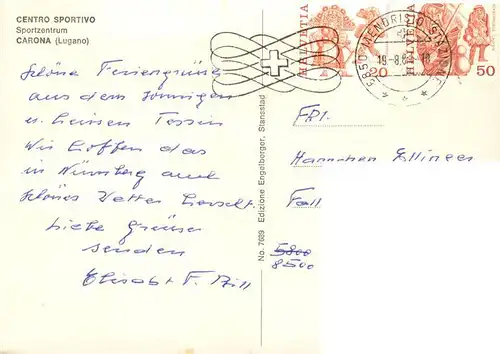 CENTRO SPORTIVO
Sportzentrum
CARONA (Lugano)
Schöne Feriengrüsse
aus dem sonnigen
u. heissen Tessin
Wir hoffen das
in Nürnberg auch
schönes Wetter herscht.
Liebe Grüsse
senden
Elisabet F. Bill
No. 7689 Edizione Engelberger, Stansstad
HELVETIA 20
HELVETIA 50
6850 MENDRISIO STAZIONE
FRL.
Hannchen Ellinger
5800
8500